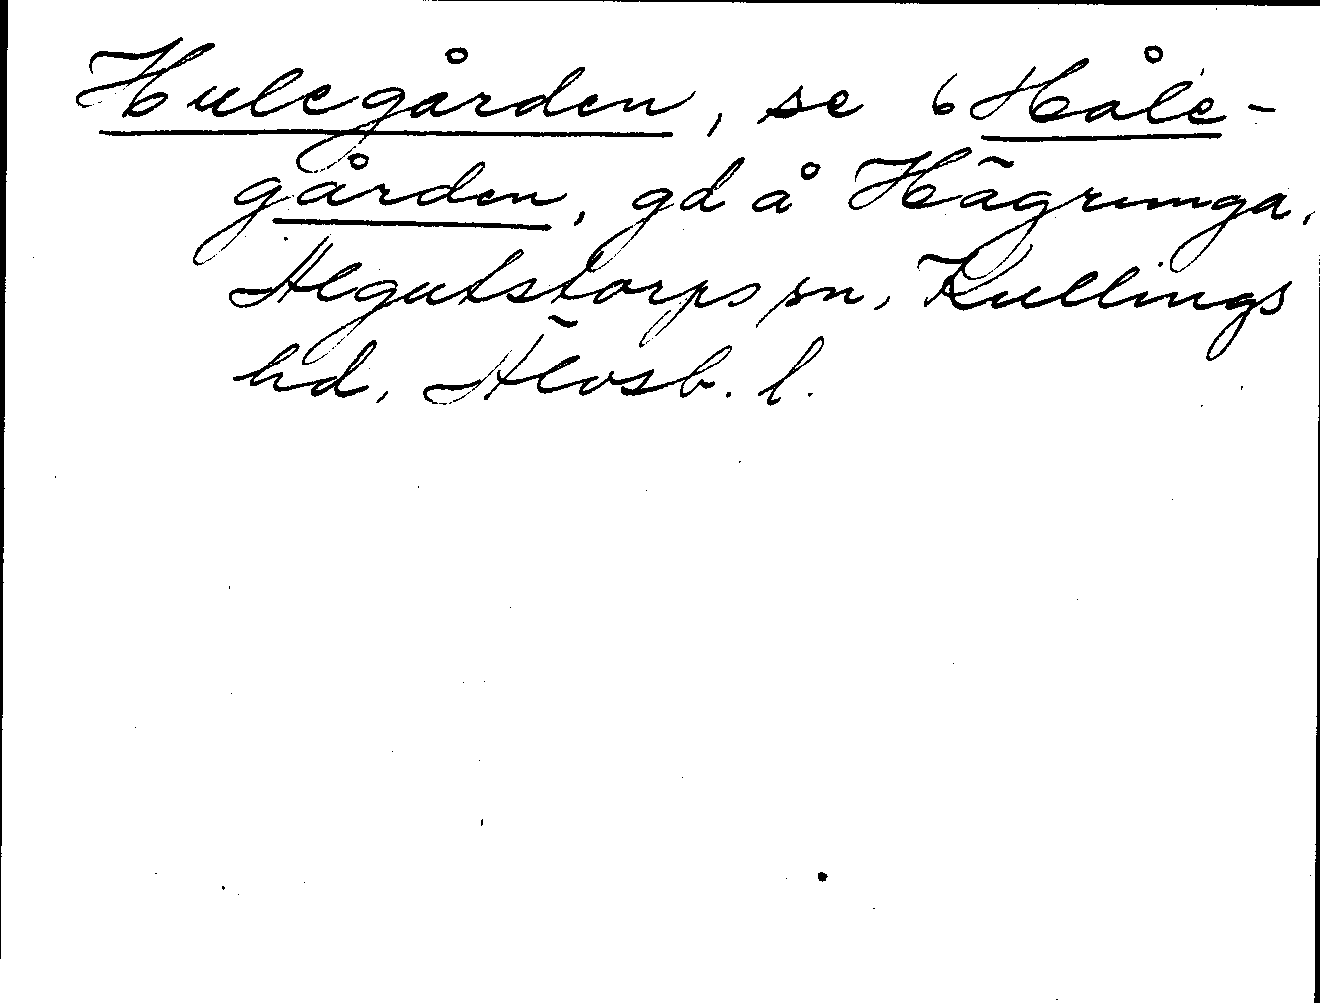 Hulegården, se 6 Håle-
gården, gd å Hägrunga,
Algutstorps sn, Kullings
hd, Älvsb. l.